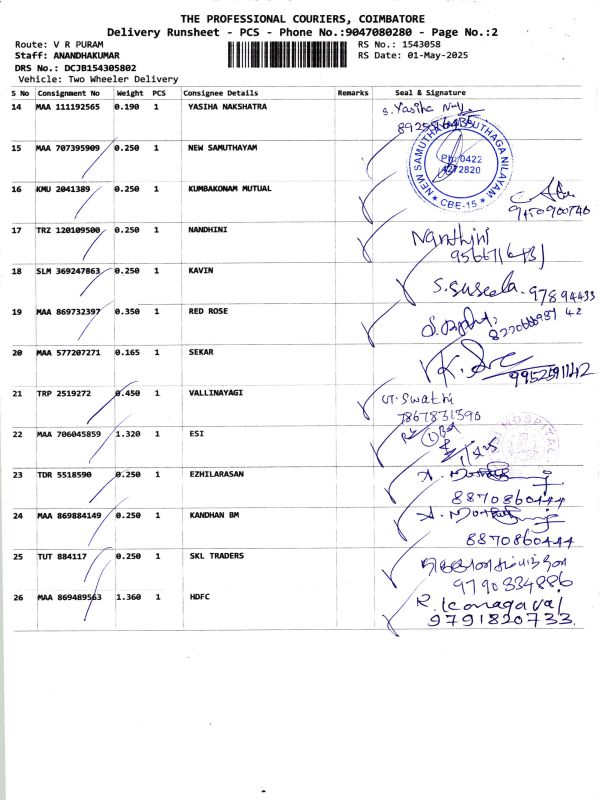 THE PROFESSIONAL COURIERS, COIMBATORE
Delivery Runsheet - PCS - Phone No.:9047080280 - Page No.:2
Route: V R PURAM
RS No.: 1543058
Staff: ANANDHAKUMAR
RS Date: 01-May-2025
DRS No.: DCJB154305802
Vehicle: Two Wheeler Delivery
S No Consignment No Weight PCS Consignee Details Remarks Seal & Signature
14 MAA 111192565 0.190 1 YASIHA NAKSHATRA S. Yasiha
15 MAA 707395909 0.250 1 NEW SAMUTHAYAM
NEW SAMUTHAGA NILAYAM
Ph: 0422
4272820
* CBE-15 *
16 KMU 2041389 0.250 1 KUMBAKONAM MUTUAL
9150900740
17 TRZ 120109500 0.250 1 NANDHINI Nanthini
18 SLM 369247863 0.250 1 KAVIN S. Suseela.
19 MAA 869732397 0.350 1 RED ROSE
20 MAA 577207271 0.165 1 SEKAR
9952591142
21 TRP 2519272 0.450 1 VALLINAYAGI Swathi
7867831590
22 MAA 706045859 1.320 1 ESI HOSPITAL
23 TDR 5518590 0.250 1 EZHILARASAN
8870860444
24 MAA 869884149 0.250 1 KANDHAN BM
8870860444
25 TUT 884117 0.250 1 SKL TRADERS
9790334886
26 MAA 869489563 1.360 1 HDFC R. Kanagaval
9791820733